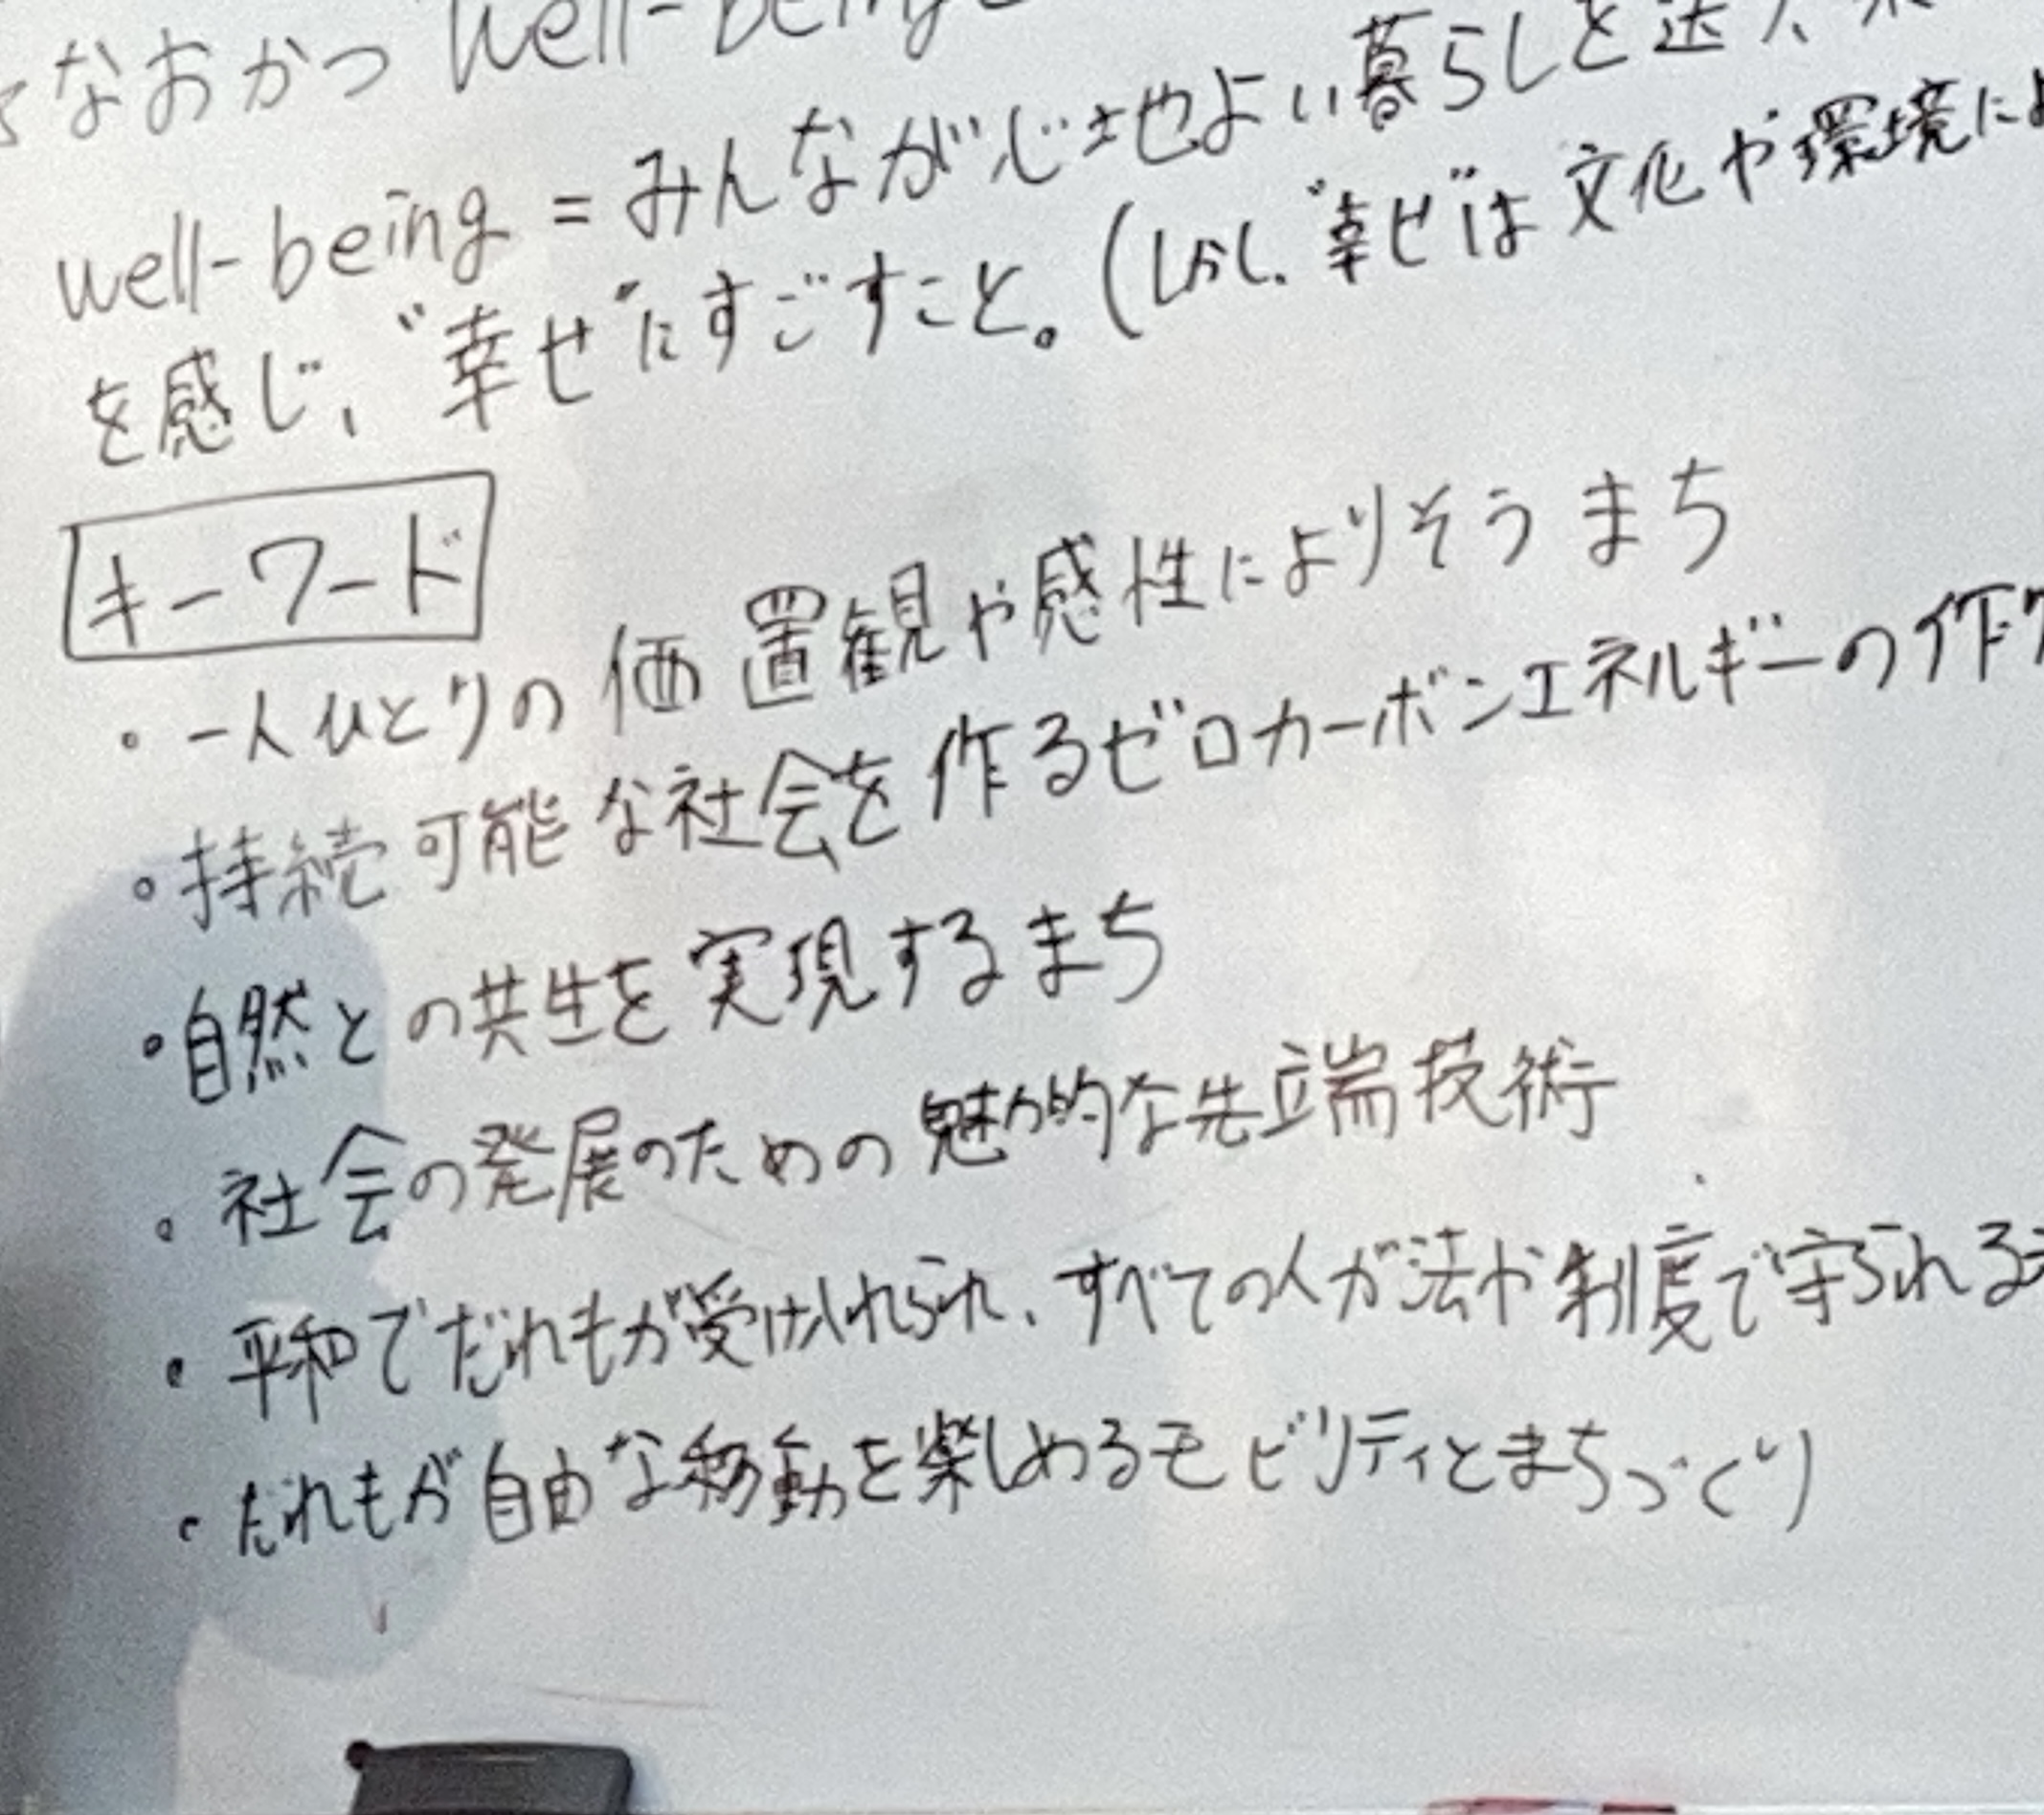 なおかつ well-being
well-being = みんなが心地よい暮らしを送り、
を感じ、"幸せ"にすごすこと。(しかし、"幸せ"は文化や環境によ
キーワード
・一人ひとりの価置観や感性によりそうまち
・持続可能な社会を作るゼロカーボンエネルギーの作
・自然との共生を実現するまち
・社会の発展のための魅力的な先端技術
・平和でだれもが受け入れられ、すべての人が法や制度で守られる
・だれもが自由な移動を楽しめるモビリティとまちづくり